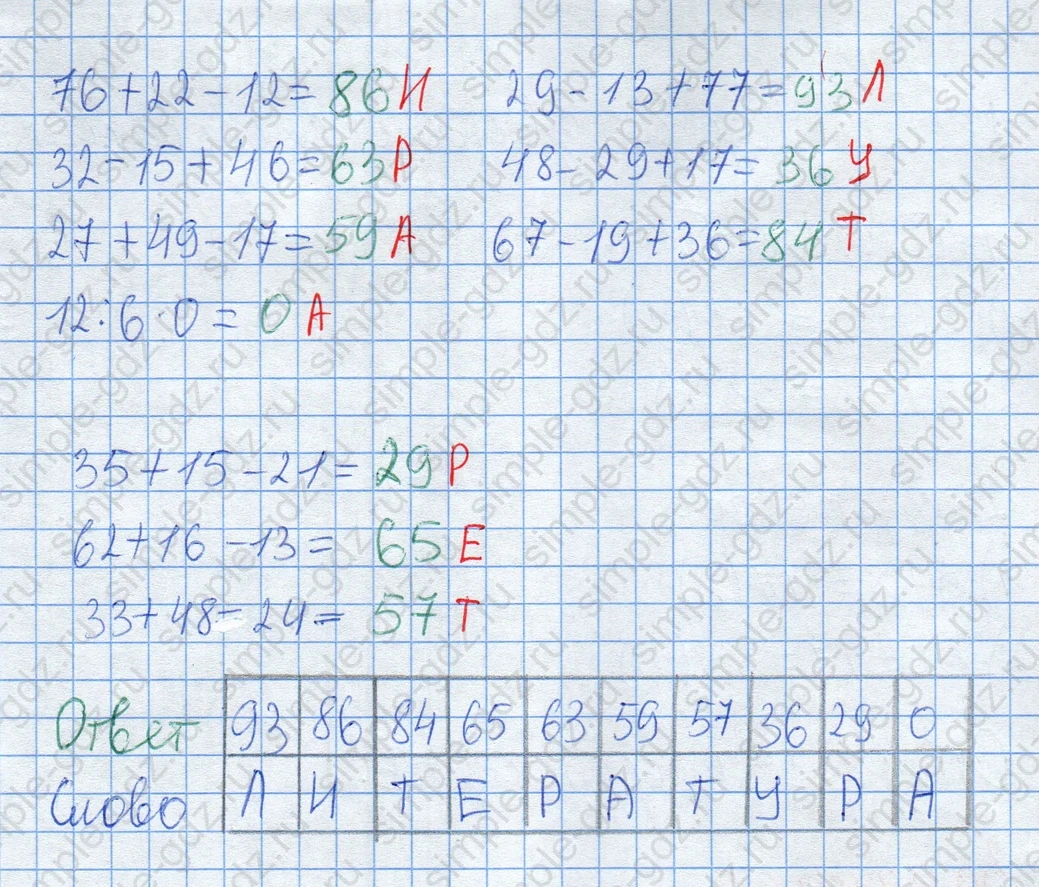 76+22-12=86 И 29-13+77=93 Л
32-15+46=63 Р 48-29+17=36 У
27+49-17=59 А 67-19+36=84 Т
12:6·0=0 А
35+15-21=29 Р
62+16-13=65 Е
33+48-24=57 Т
Ответ 93 86 84 65 63 59 57 36 29 0
Слово Л И Т Е Р А Т У Р А
simple-gdz.ru